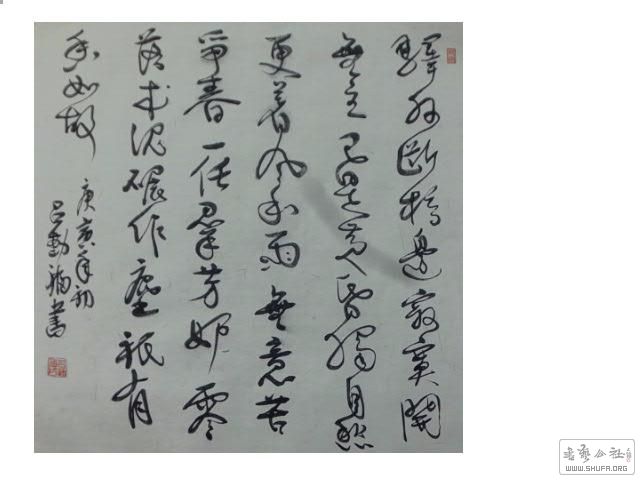 驛外斷橋邊寂寞開
無主已是黃昏獨自愁
更着風和雨無意苦
爭春一任羣芳妒零
落成泥碾作塵祇有
香如故
庚寅年初
書
书艺公社
WWW.SHUFA.ORG